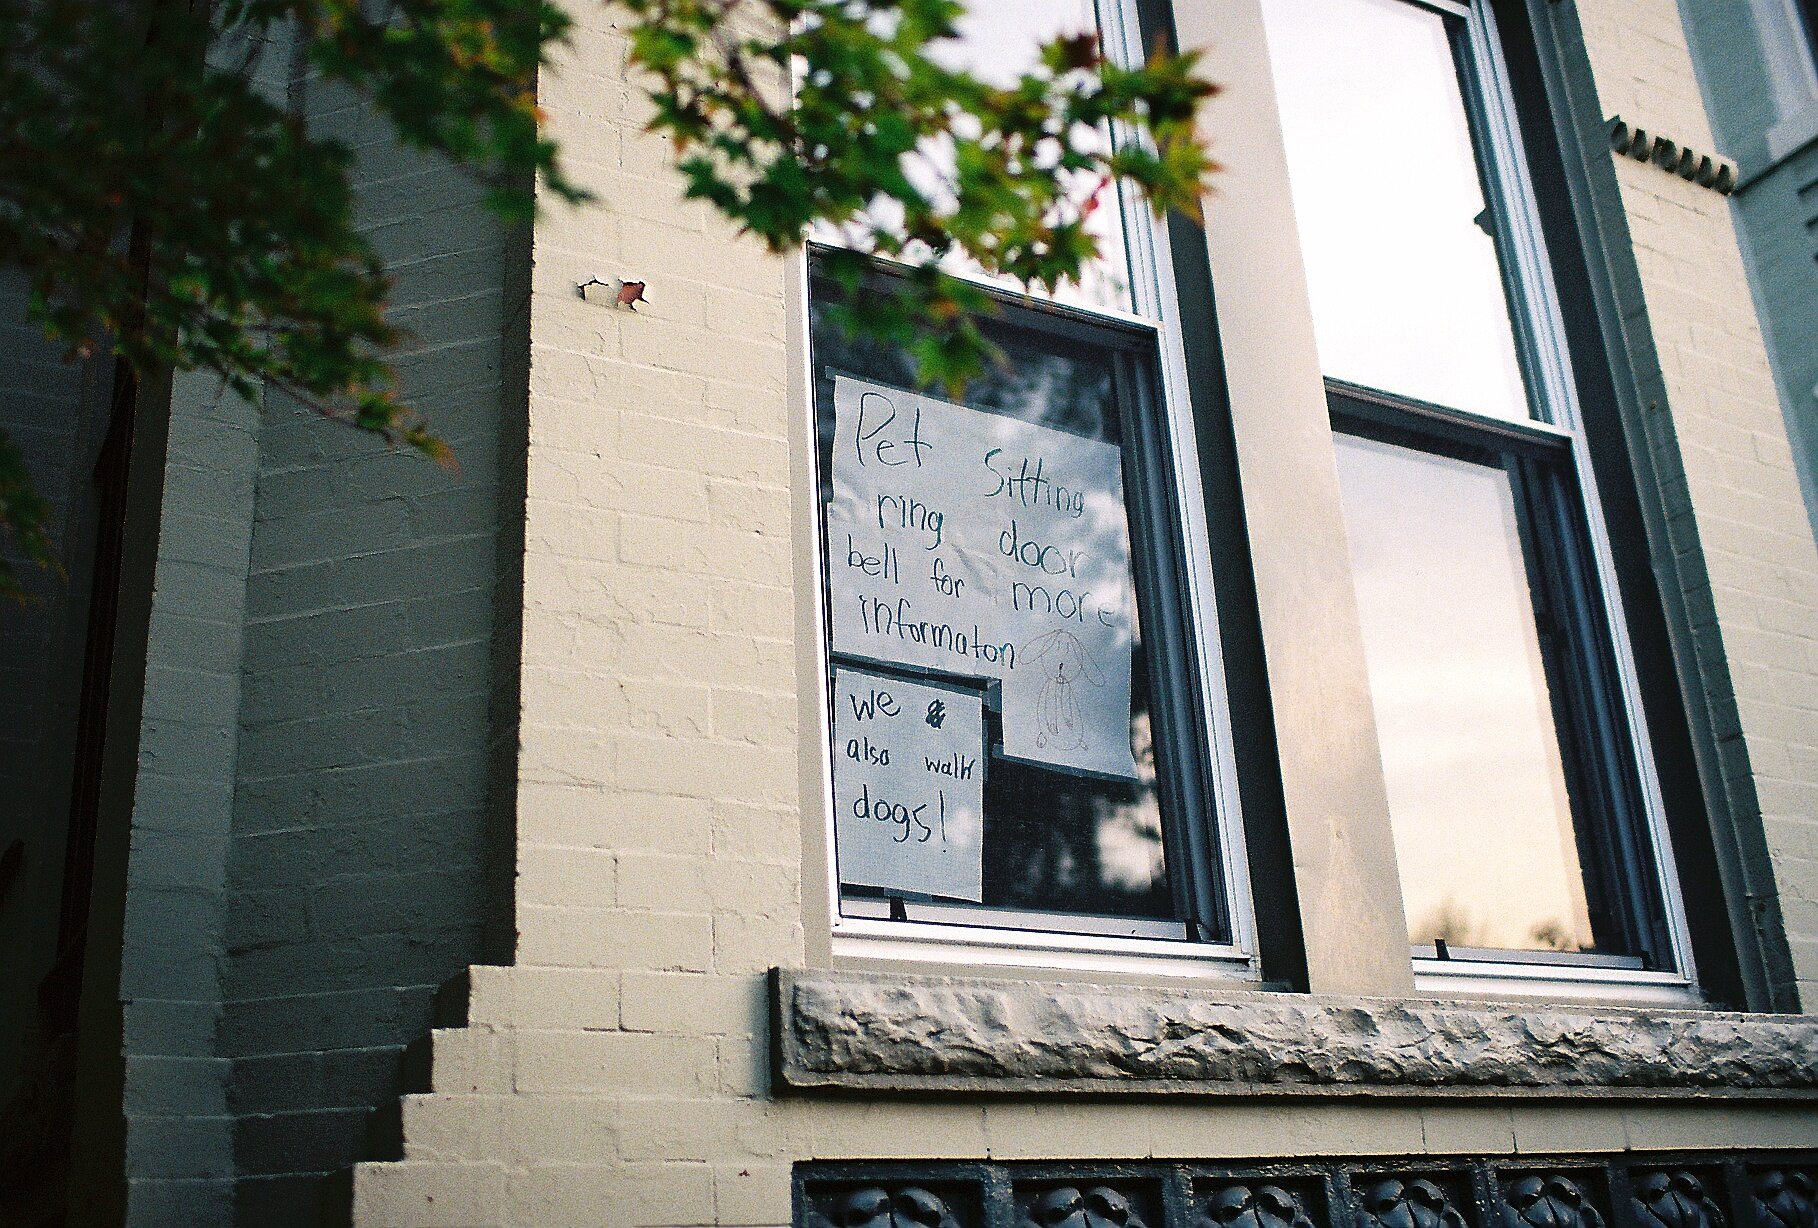 Pet Sitting
ring door
bell for more
informaton
we
also walk
dogs!